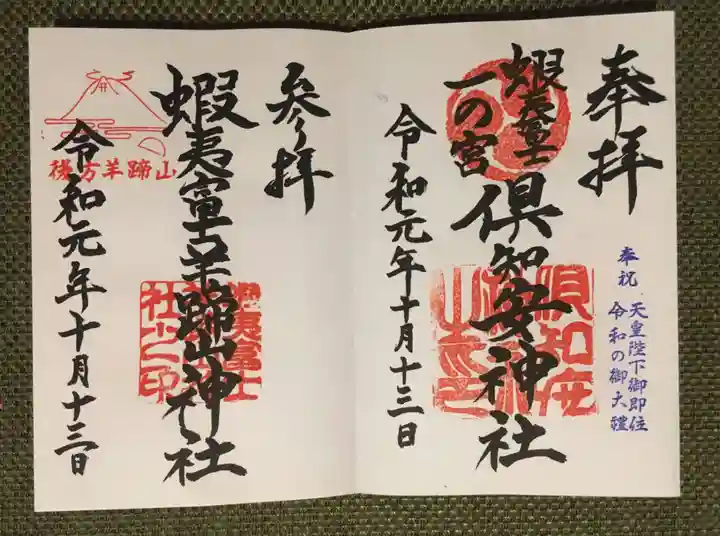 奉拝
奉祝 天皇陛下御即位
令和の御大禮
蝦夷富士
一の宮
倶知安神社
令和元年十月十三日
参り拝
蝦夷富士羊蹄山神社
後方羊蹄山
令和元年十月十三日